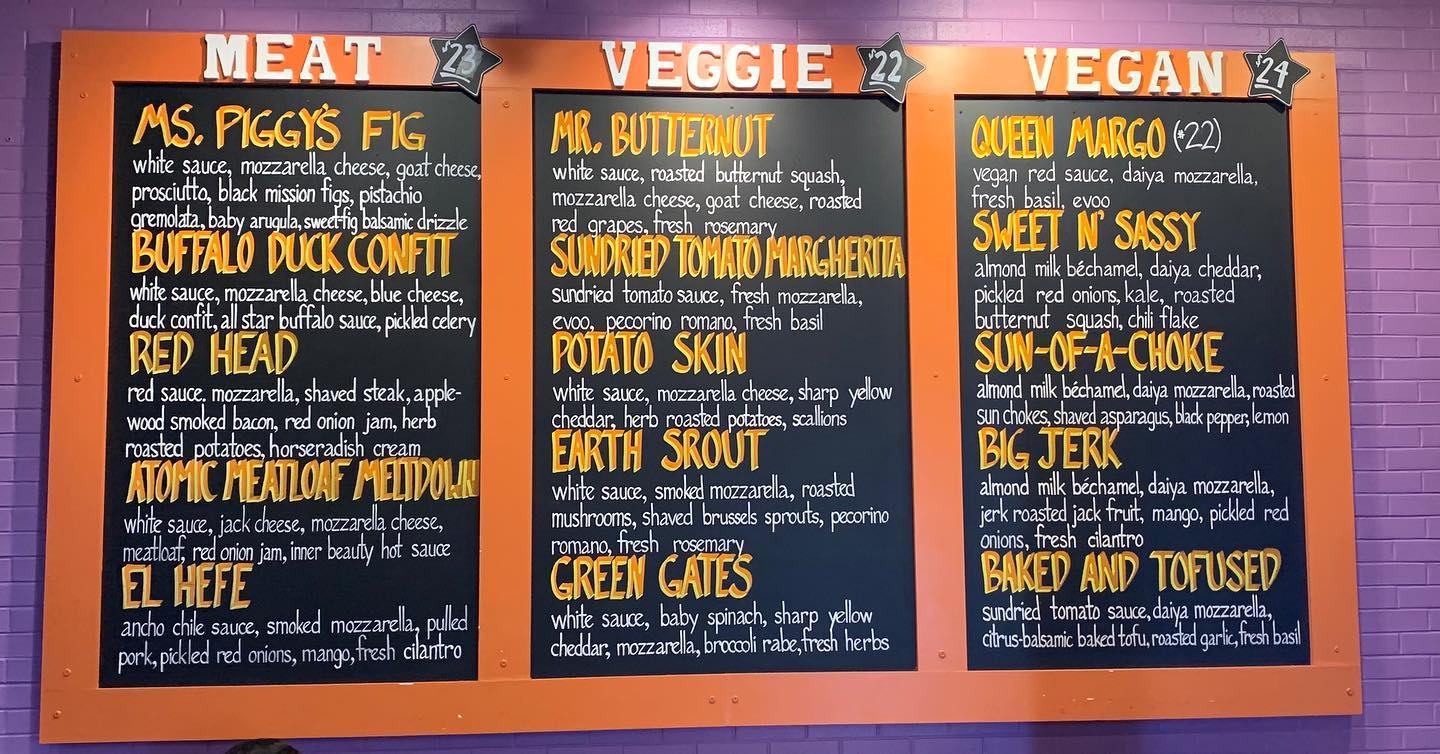 MEAT $23
MS. PIGGY'S FIG
white sauce, mozzarella cheese, goat cheese,
prosciutto, black mission figs, pistachio
gremolata, baby arugula, sweet-fig balsamic drizzle
BUFFALO DUCK CONFIT
white sauce, mozzarella cheese, blue cheese,
duck confit, all star buffalo sauce, pickled celery
RED HEAD
red sauce. mozzarella, shaved steak, apple-
wood smoked bacon, red onion jam, herb
roasted potatoes, horseradish cream
ATOMIC MEATLOAF MELTDOWN
white sauce, jack cheese, mozzarella cheese,
meatloaf, red onion jam, inner beauty hot sauce
EL HEFE
ancho chile sauce, smoked mozzarella, pulled
pork, pickled red onions, mango, fresh cilantro
VEGGIE $22
MR. BUTTERNUT
white sauce, roasted butternut squash,
mozzarella cheese, goat cheese, roasted
red grapes, fresh rosemary
SUNDRIED TOMATO MARGHERITA
sundried tomato sauce, fresh mozzarella,
evoo, pecorino romano, fresh basil
POTATO SKIN
white sauce, mozzarella cheese, sharp yellow
cheddar, herb roasted potatoes, scallions
EARTH SROUT
white sauce, smoked mozzarella, roasted
mushrooms, shaved brussels sprouts, pecorino
romano, fresh rosemary
GREEN GATES
white sauce, baby spinach, sharp yellow
cheddar, mozzarella, broccoli rabe, fresh herbs
VEGAN $24
QUEEN MARGO ($22)
vegan red sauce, daiya mozzarella,
fresh basil, evoo
SWEET N' SASSY
almond milk béchamel, daiya cheddar,
pickled red onions, kale, roasted
butternut squash, chili flake
SUN-OF-A-CHOKE
almond milk béchamel, daiya mozzarella, roasted
sun chokes, shaved asparagus, black pepper, lemon
BIG JERK
almond milk béchamel, daiya mozzarella,
jerk roasted jack fruit, mango, pickled red
onions, fresh cilantro
BAKED AND TOFUSED
sundried tomato sauce, daiya mozzarella,
citrus-balsamic baked tofu, roasted garlic, fresh basil